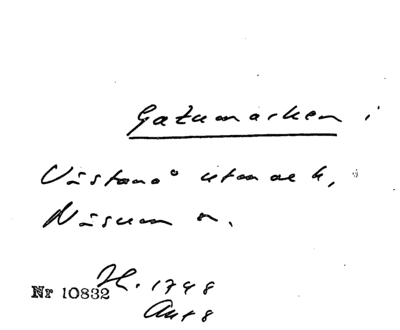 Gatumarken i
Västanå utmark,
Näsum sn.
H. 1748
Nr 10832
Akt 8